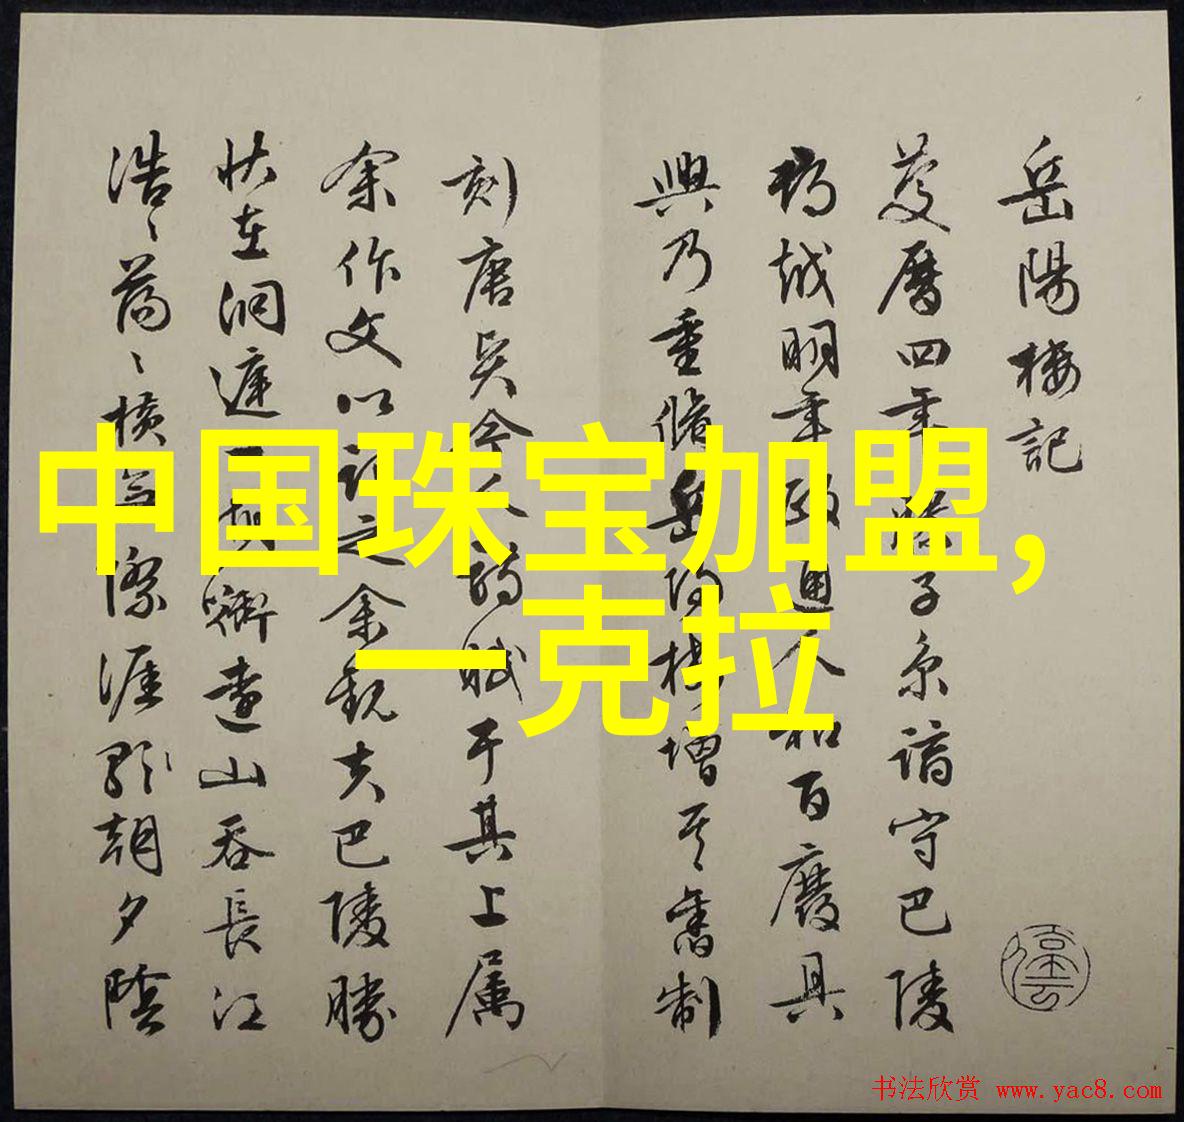 岳陽樓記
慶曆四年滕子京謫守巴陵
郡越明年政通人和百廢具
興乃重脩岳陽樓增其舊制
刻唐賢今人詩賦于其上屬
余作文以記之余觀夫巴陵勝
狀在洞庭一湖銜遠山吞長江
浩〻蕩〻橫無際涯朝夕陰
中国珠宝加盟,
一克拉
书法欣赏 www.yac8.com